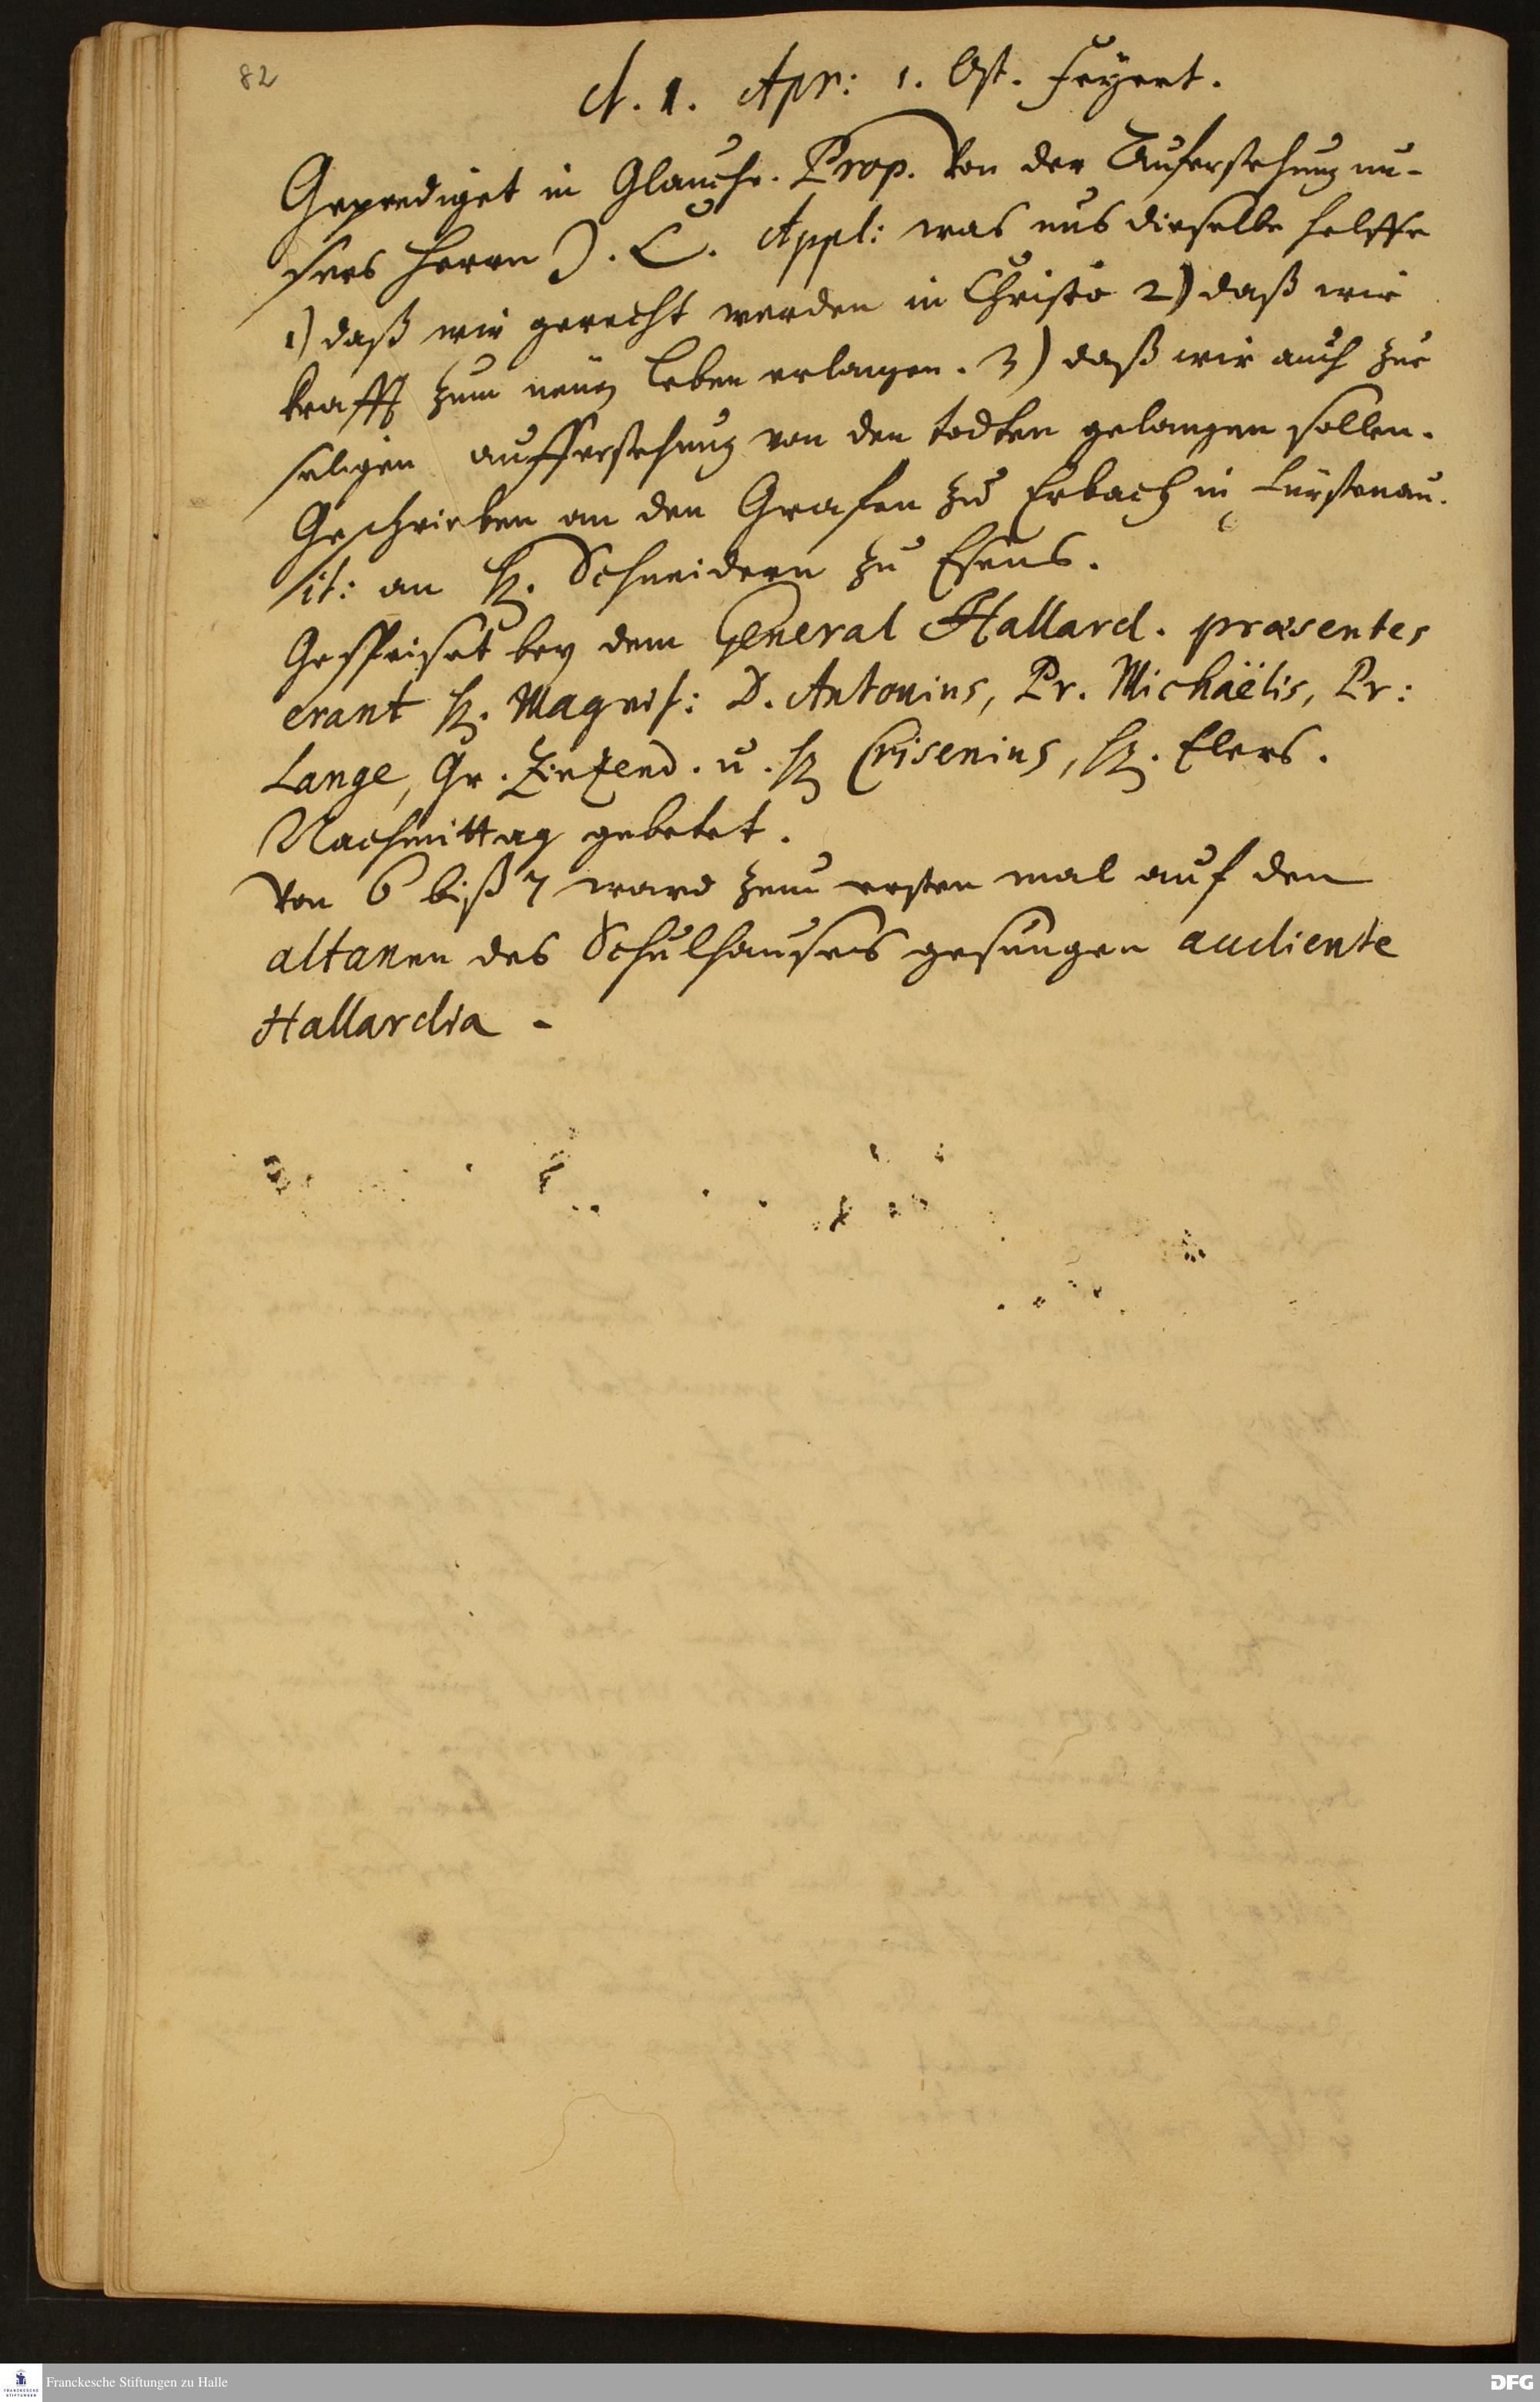 82
d. 1. Apr: 1. Ost. Feyert.
Geprediget in Glaucha. Prop. Von der Auferstehung un-
sers Herrn J. C. Appl: was uns dieselbe helffe
1) daß wir gerecht werden in Christo 2) daß wir
krafft zum neuen Leben erlangen. 3) daß wir auch zur
seligen aufferstehung von den todten gelangen sollen.
Geschrieben an den Grafen zu Erbach in Fürstenau.
it: an H. Schneidern zu Esens.
Gespeiset bey dem General Hallard. præsentes
erant H. Magnif: D. Antonius, Pr. Michaëlis, Pr:
Lange, Gr. Zinzend. u. H Crisenius, H. Elers.
Nachmittag gebetet.
Von 6 biß 7 ward zum ersten mal auf den
altanen des Schulhauses gesungen audiente
Hallardia.
Franckesche Stiftungen zu Halle
DFG